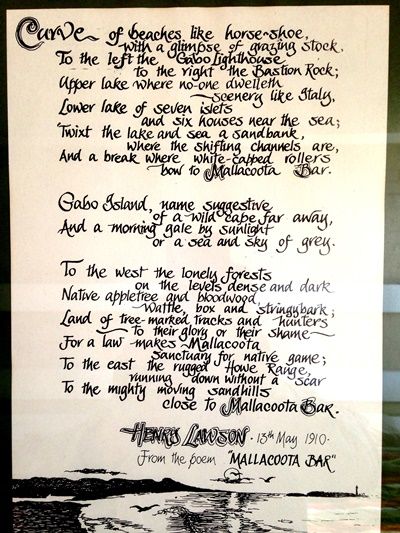 Curve of beaches like horse-shoe,
with a glimpse of grazing stock.
To the left the Gabo Lighthouse
to the right the Bastion Rock;
Upper lake where no-one dwelleth
scenery like Italy,
Lower lake of seven islets
and six houses near the sea;
Twixt the lake and sea a sandbank,
where the shifting channels are,
And a break where white-capped rollers
bow to Mallacoota Bar.
Gabo Island, name suggestive
of a wild cape far away,
And a morning gale by sunlight
or a sea and sky of grey.
To the west the lonely forests
on the levels dense and dark
Native appletree and bloodwood
wattle, box and stringybark;
Land of tree-marked tracks and hunters
to their glory or their shame
For a law makes Mallacoota
Sanctuary for native game;
To the east the rugged Howe Range,
running down without a scar
To the mighty moving sandhills
close to Mallacoota Bar.
HENRY LAWSON · 13th May 1910 ·
From the poem "MALLACOOTA BAR"